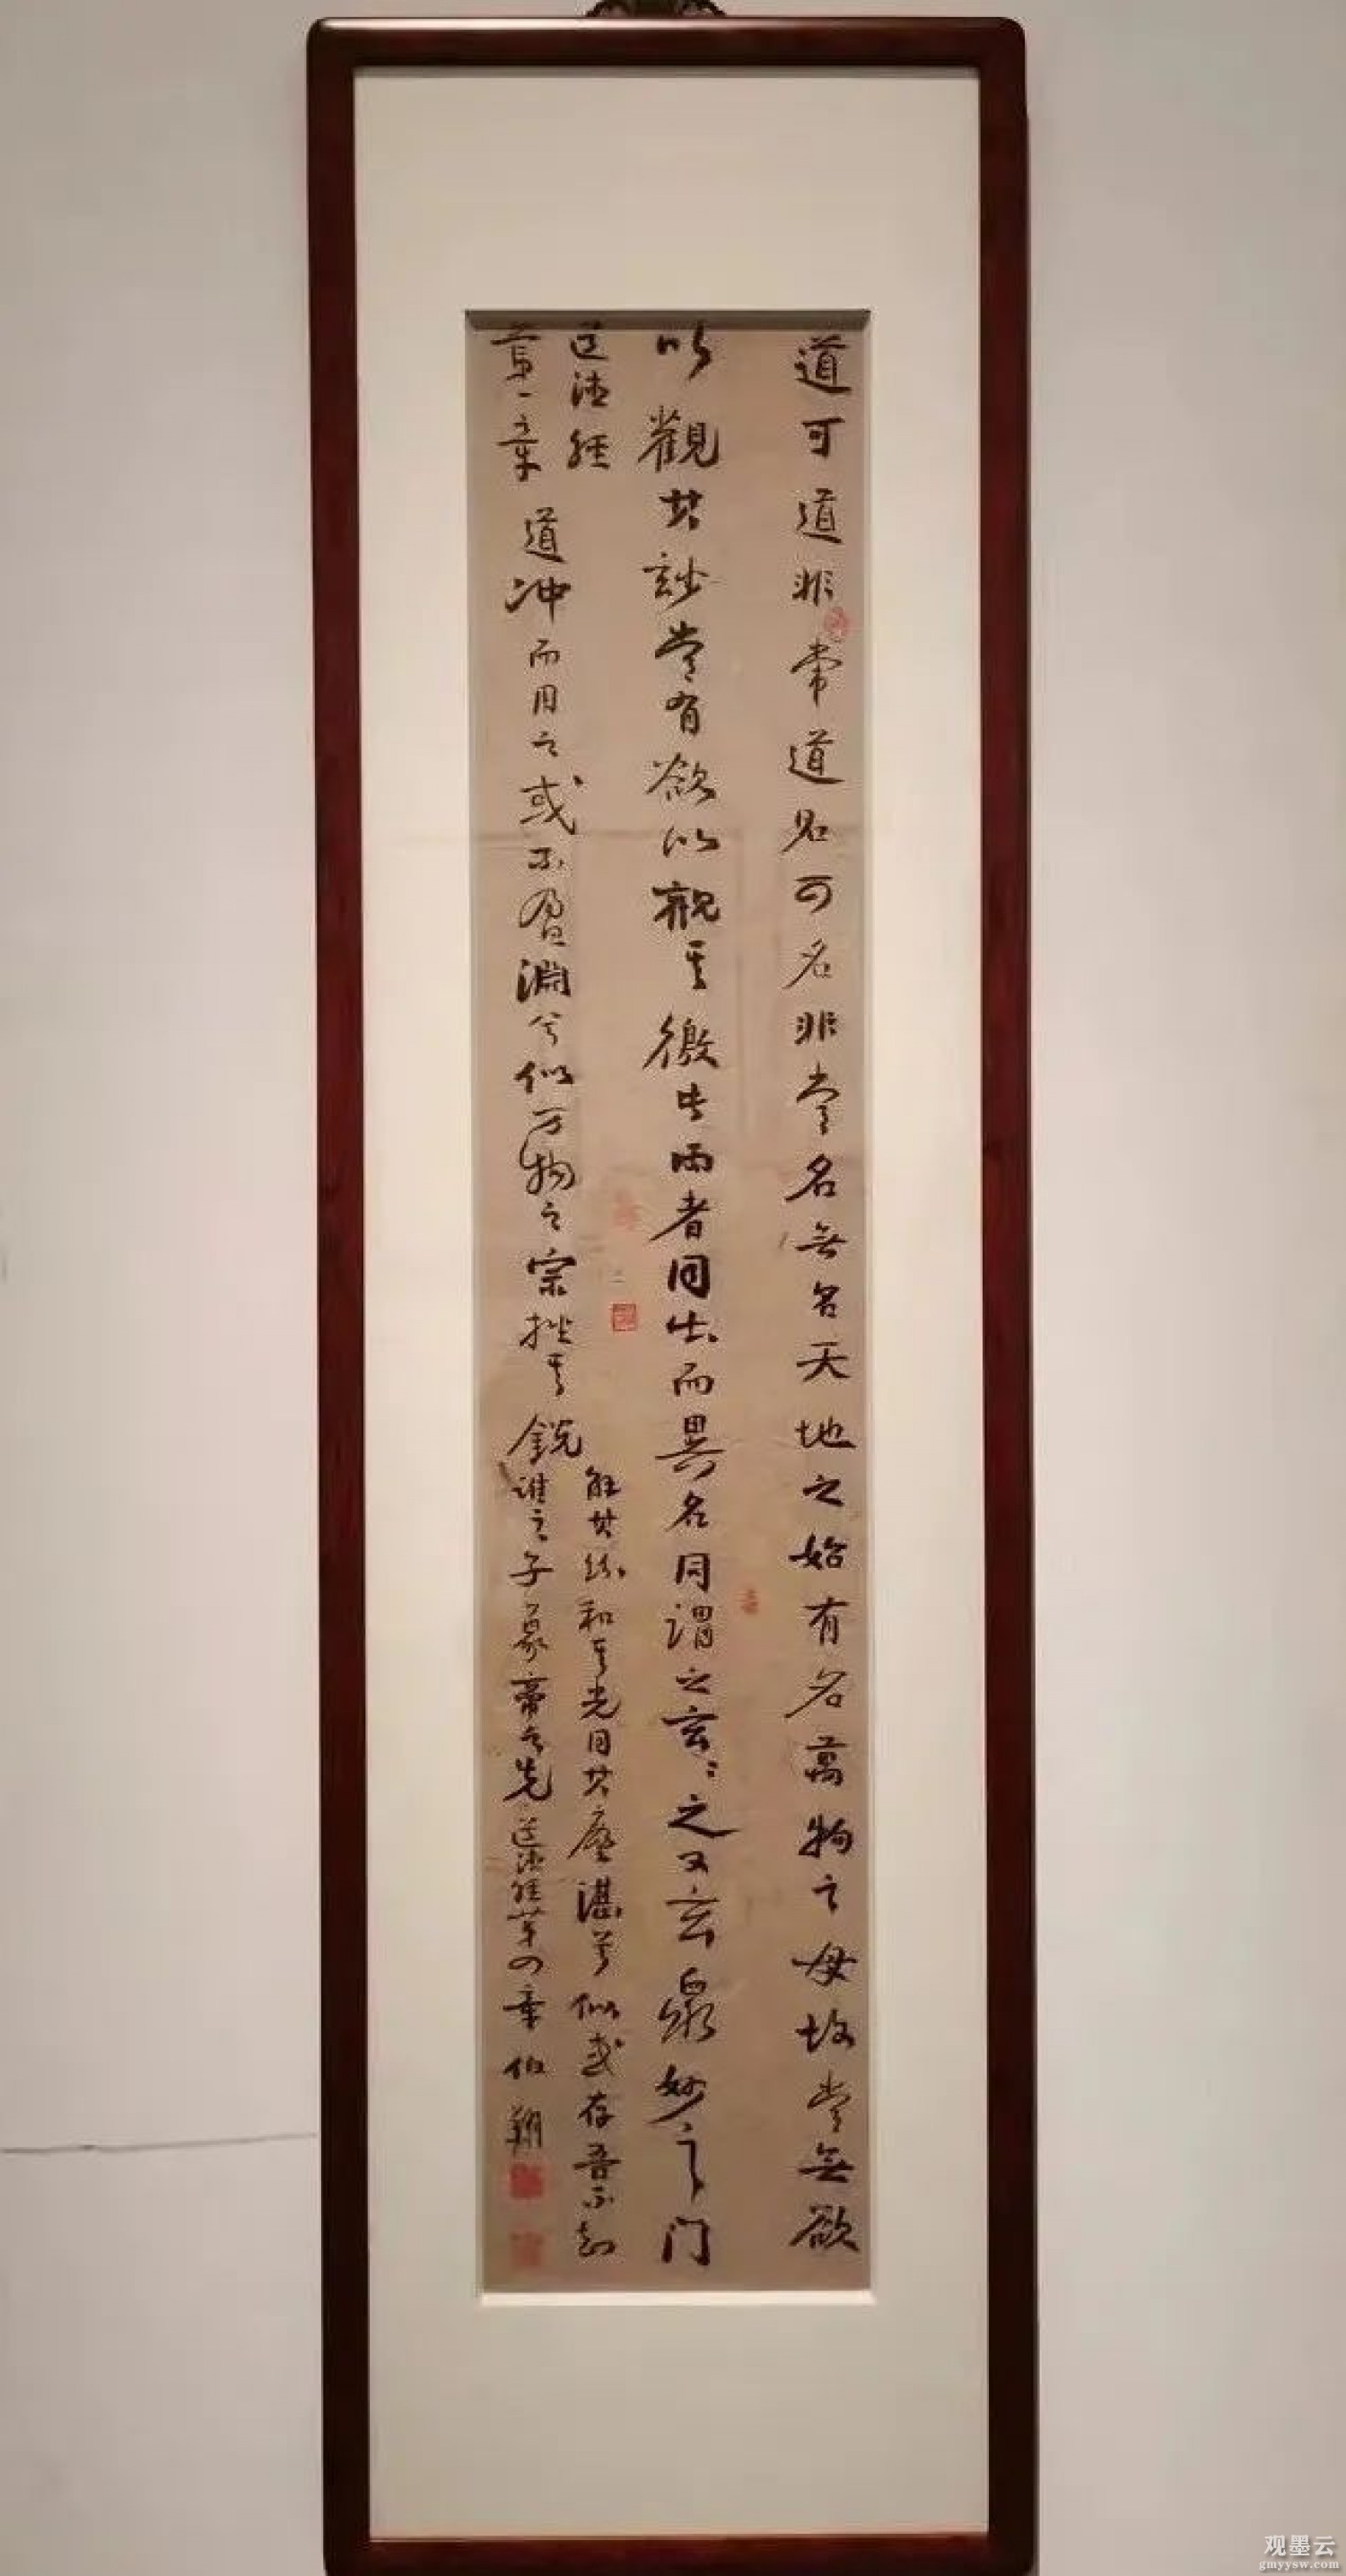 道可道非常道名可名非常名無名天地之始有名萬物之母故常無欲
以觀其玅常有欲以觀其徼此兩者同出而異名同謂之玄〻之又玄眾妙之门
道德經
第一章
道冲而用之或不盈淵兮似万物之宗挫其銳
解其紛和其光同其塵湛兮似或存吾不知
誰之子象帝之先 道德經第四章 伯翔
观墨云
gmyysw.com